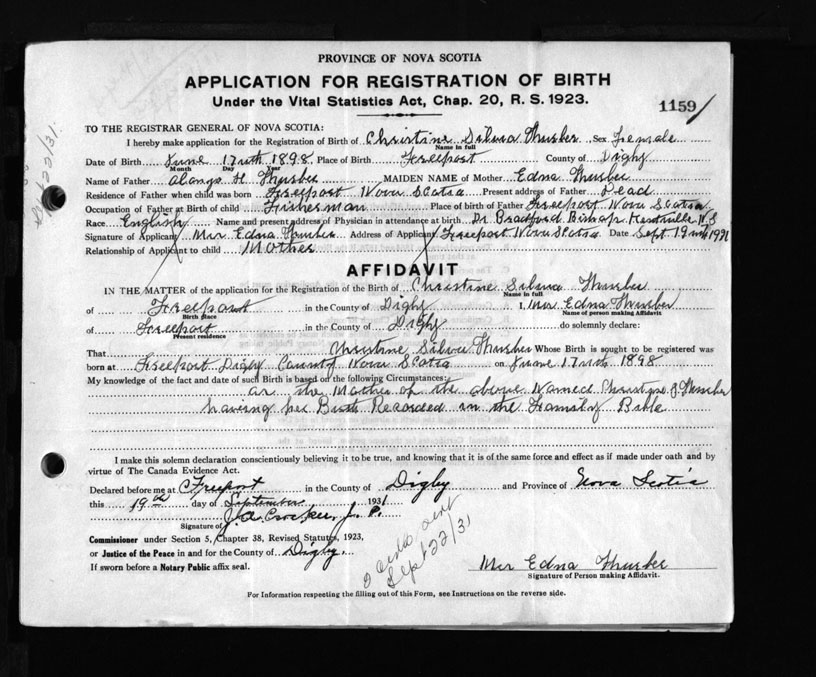 PROVINCE OF NOVA SCOTIA
APPLICATION FOR REGISTRATION OF BIRTH
Under the Vital Statistics Act, Chap. 20, R. S. 1923.
1159
TO THE REGISTRAR GENERAL OF NOVA SCOTIA:
I hereby make application for the Registration of Birth of Christine Silvia Thurber Sex Female
Name in full
Date of Birth June 17nth 1898 Place of Birth Freeport County of Digby
Month Day Year
Name of Father Alonzo H Thurber MAIDEN NAME of Mother Edna Thurber
Residence of Father when child was born Freeport Nova Scotia Present address of Father Dead
Occupation of Father at Birth of child Fisherman Place of birth of Father Freeport Nova Scotia
Race English Name and present address of Physician in attendance at birth Dr Bradford Bishop Kentville N.S
Signature of Applicant Mrs Edna Thurber Address of Applicant Freeport Nova Scotia Date Sept 19nth 1931
Relationship of Applicant to child Mother
AFFIDAVIT
IN THE MATTER of the application for the Registration of the Birth of Christine Silvia Thurber
Name in full
of Freeport in the County of Digby I, Mrs Edna Thurber
Birth place Name of person making Affidavit
of Freeport in the County of Digby do solemnly declare:
Present residence
That Christine Silvia Thurber Whose Birth is sought to be registered was
born at Freeport Digby County Nova Scotia on June 17nth 1898
My knowledge of the fact and date of such Birth is based on the following Circumstances:
as the Mother of the above Named Christyne S Thurber
having her Birth Recorded in the Family Bible
I make this solemn declaration conscientiously believing it to be true, and knowing that it is of the same force and effect as if made under oath and by
virtue of The Canada Evidence Act.
Declared before me at Freeport in the County of Digby and Province of Nova Scotia
this 19th day of September 1931
Signature of J. A. Crocker, J. P.
Commissioner under Section 5, Chapter 38, Revised Statutes, 1923,
or Justice of the Peace in and for the County of Digby
If sworn before a Notary Public affix seal.
sent
Sept 22/31
Mrs Edna Thurber
Signature of Person making Affidavit.
For Information respecting the filling out of this Form, see Instructions on the reverse side.